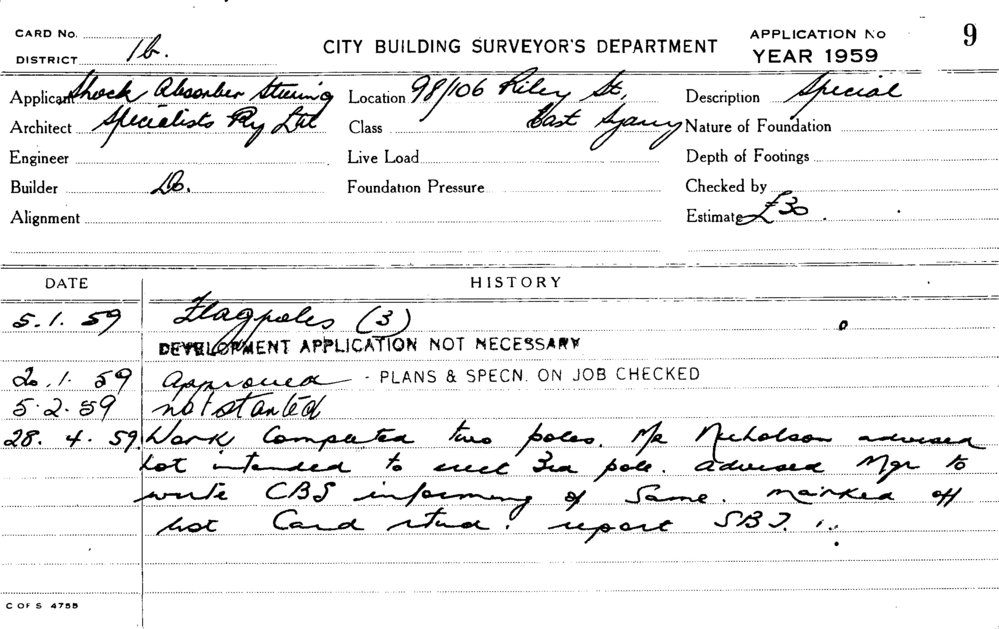 CARD No.
DISTRICT 1b.
CITY BUILDING SURVEYOR'S DEPARTMENT
APPLICATION No 9
YEAR 1959
Applicant Shock Absorber Steering Location 98/106 Riley St, Description Special
Architect Specialists Pty Ltd Class East Sydney Nature of Foundation
Engineer Live Load Depth of Footings
Builder Do. Foundation Pressure Checked by
Alignment Estimate £30.
DATE HISTORY
5.1.59 Flagpoles (3)
DEVELOPMENT APPLICATION NOT NECESSARY
20.1.59 Approved - PLANS & SPECN. ON JOB CHECKED
5.2.59 not started
28.4.59. Work Completed two poles. Mr Nicholson advised
not intended to erect 3rd pole. advised Mgr to
write CBS informing of Same. marked off
list Card . report
C OF S 4755